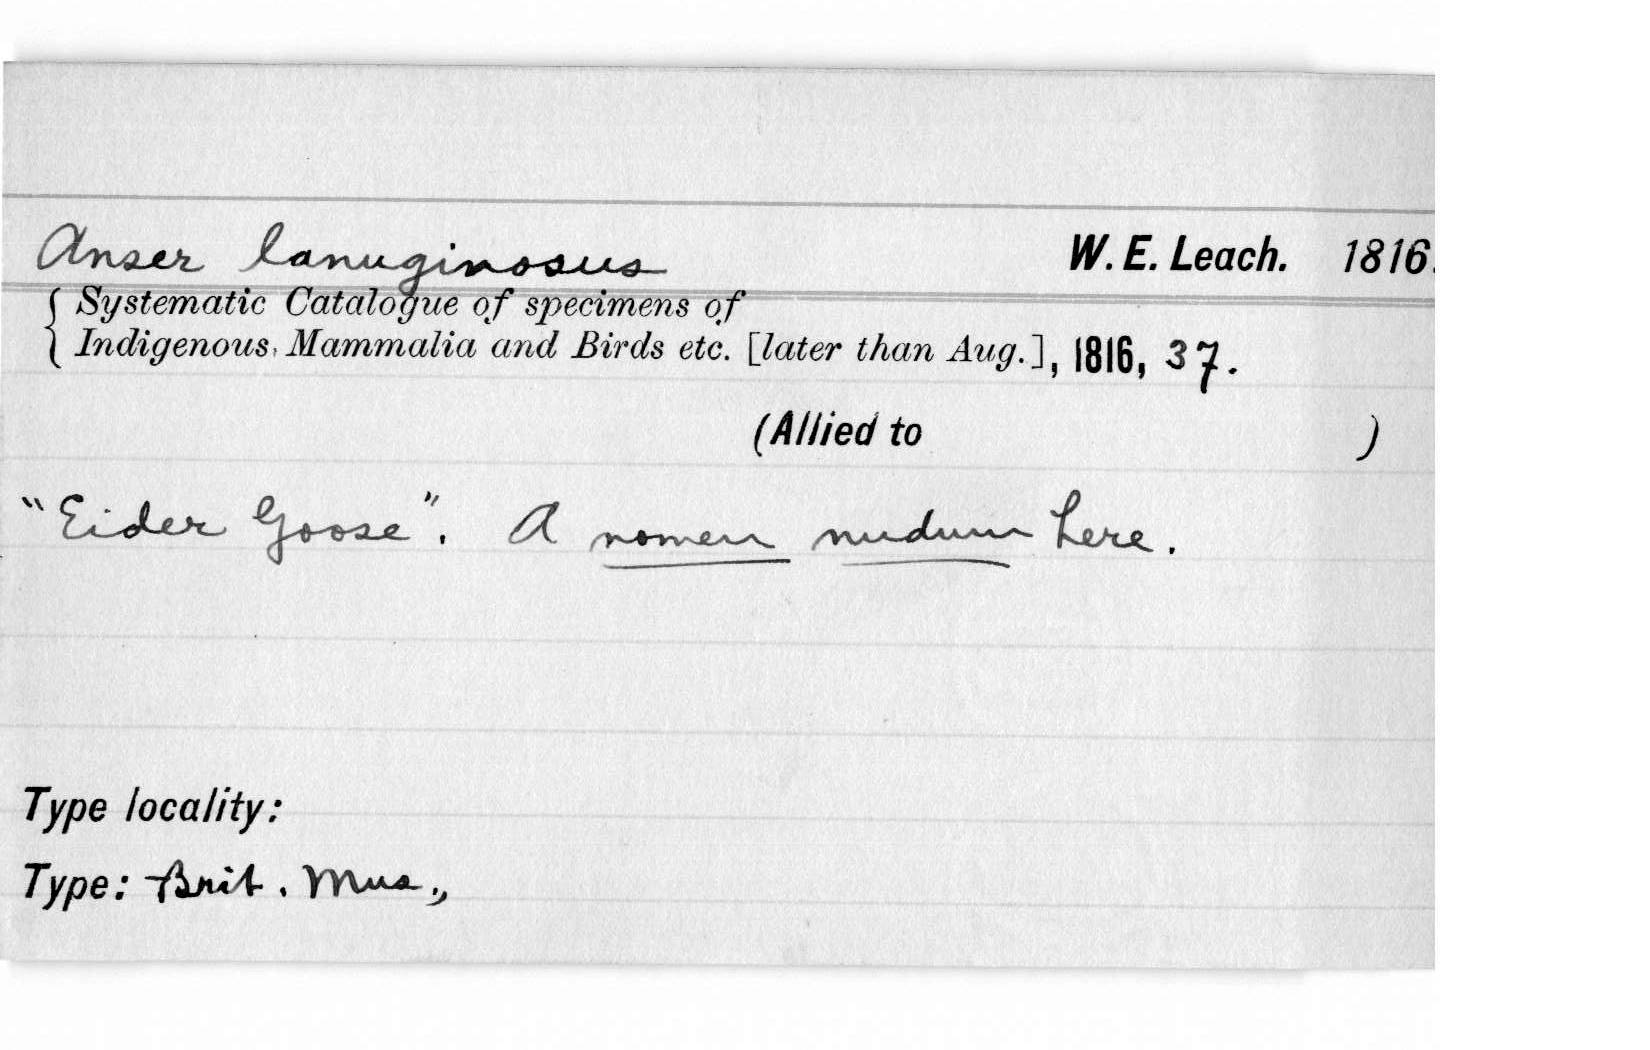 Anser lanuginosus W. E. Leach. 1816.
Systematic Catalogue of specimens of
Indigenous, Mammalia and Birds etc. [later than Aug.], 1816, 37.
(Allied to )
"Eider Goose". A nomen nudum here.
Type locality:
Type: Brit. Mus.,